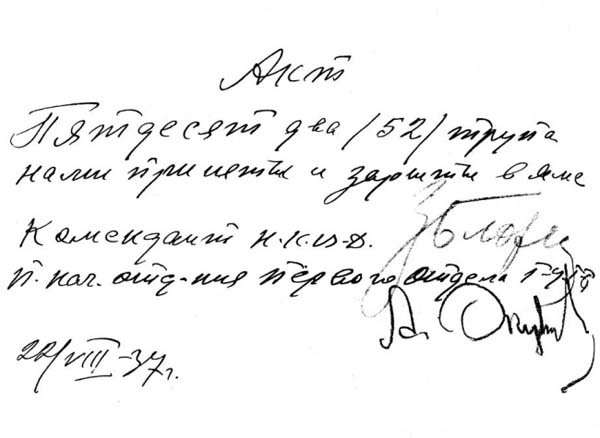 Акт
Пятдесят два /52/ трупа
нами приняты и зарыты в яме
Комендант н.к.в-д.
п. нач. отд-ния первого отдела
22/VIII-37г.